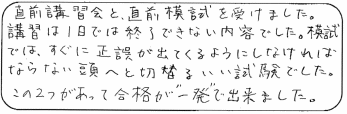 直前講習会と、直前模試を受けました。
講習は1日では終了できない内容でした。模試
では、すぐに正誤が出てくるようにしなければ
ならない頭へと切替るいい試験でした。
この2つがあって合格が“一発”で出来ました。